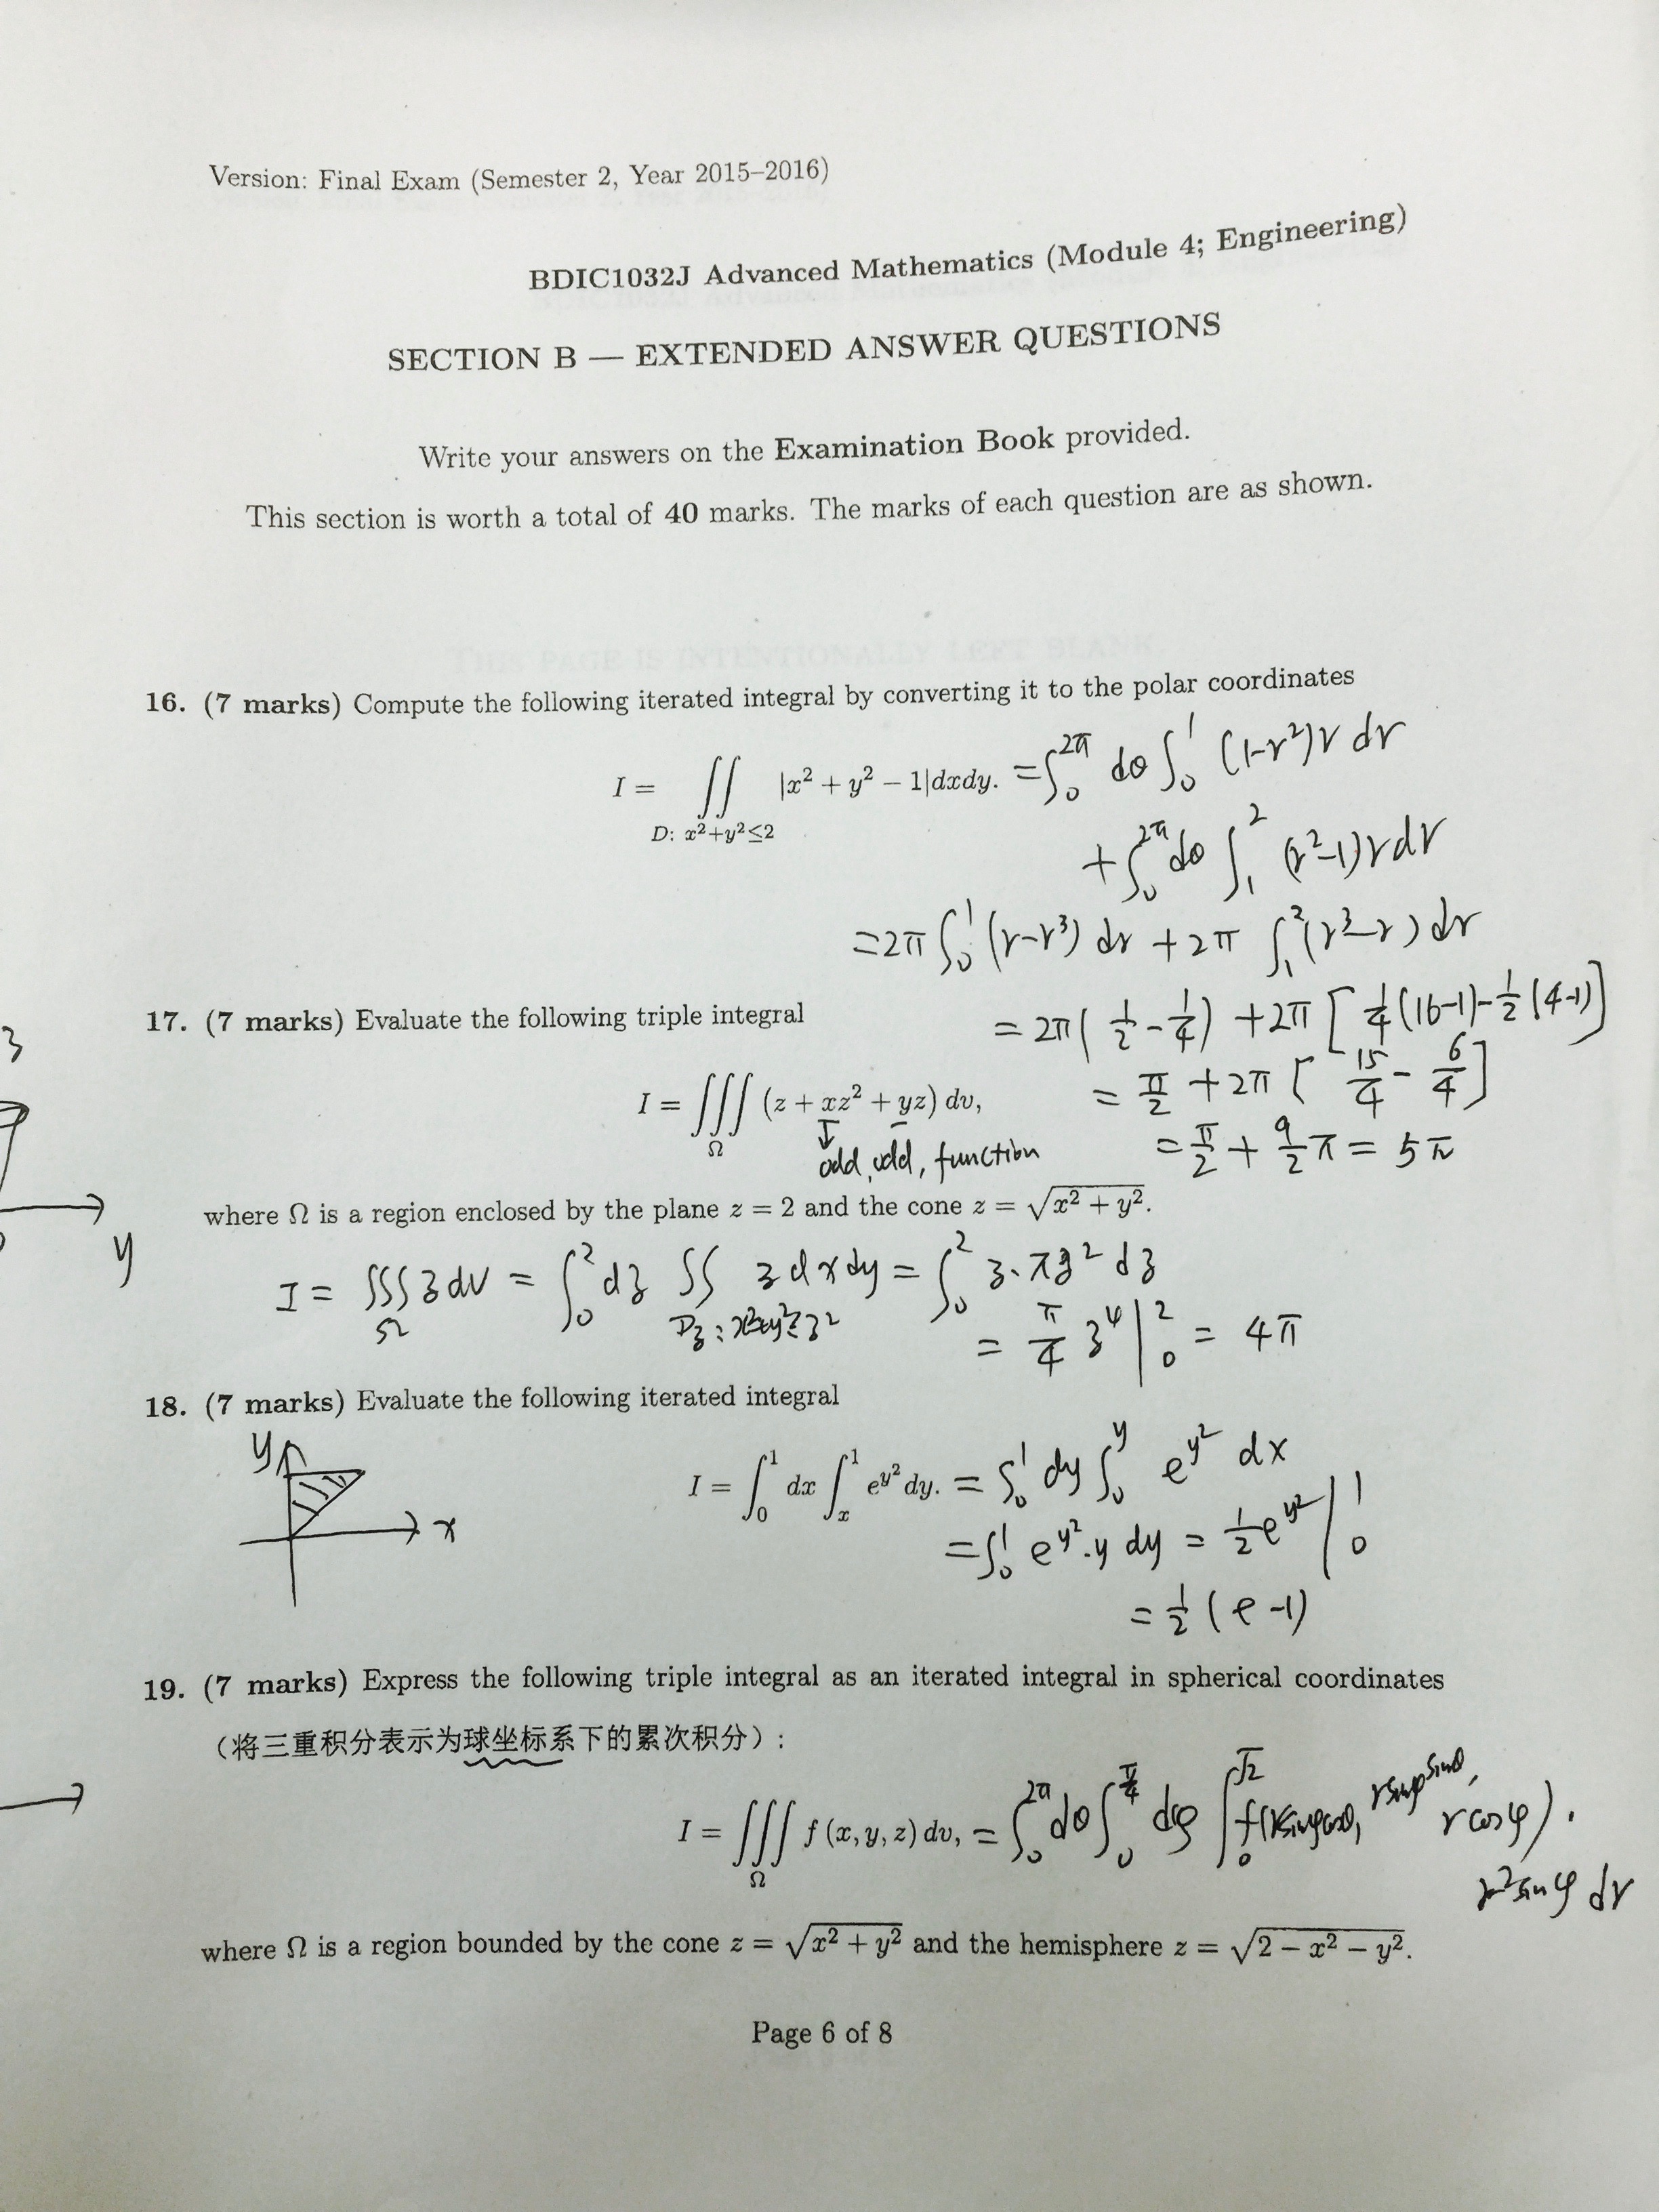 Version: Final Exam (Semester 2, Year 2015–2016)
BDIC1032J Advanced Mathematics (Module 4; Engineering)
SECTION B — EXTENDED ANSWER QUESTIONS
Write your answers on the Examination Book provided.
This section is worth a total of 40 marks. The marks of each question are as shown.
THIS PAGE IS INTENTIONALLY LEFT BLANK.
16. (7 marks) Compute the following iterated integral by converting it to the polar coordinates
I = ∬_{D: x²+y²≤2} |x² + y² − 1|dxdy. = ∫₀^{2π} dθ ∫₀^1 (1-r²)r dr
+ ∫₀^{2π} dθ ∫₁^2 (r²-1)r dr
= 2π ∫₀^1 (r-r³) dr + 2π ∫₁^2 (r³-r) dr
= 2π( 1/2 - 1/4 ) + 2π [ 1/4 (16-1) - 1/2 (4-1)]
= π/2 + 2π [ 15/4 - 6/4 ]
= π/2 + 9/2 π = 5π
17. (7 marks) Evaluate the following triple integral
I = ∭_Ω (z + xz² + yz) dv,
odd, odd, function
where Ω is a region enclosed by the plane z = 2 and the cone z = √(x² + y²).
z
y
I = ∭_Ω z dv = ∫₀^2 dz ∬_{Dz: x²+y²≤z²} z dxdy = ∫₀^2 z·πz² dz
= π/4 z⁴ |₀^2 = 4π
18. (7 marks) Evaluate the following iterated integral
y
x
I = ∫₀^1 dx ∫ₓ^1 e^{y²} dy. = ∫₀^1 dy ∫₀^y e^{y²} dx
= ∫₀^1 e^{y²}·y dy = 1/2 e^{y²} |₀^1
= 1/2 (e-1)
19. (7 marks) Express the following triple integral as an iterated integral in spherical coordinates
（将三重积分表示为球坐标系下的累次积分）:
I = ∭_Ω f (x, y, z) dv, = ∫₀^{2π} dθ ∫₀^{π/4} dφ ∫₀^{√2} f(r sinφ cosθ, r sinφ sinθ, r cosφ)·
r² sinφ dr
where Ω is a region bounded by the cone z = √(x² + y²) and the hemisphere z = √(2 − x² − y²).
Page 6 of 8